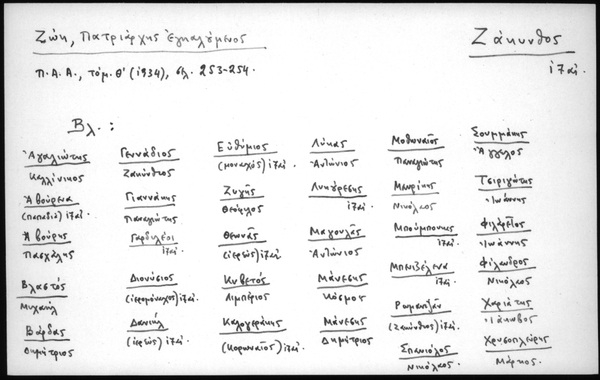 Ζώη, Πατριάρχης Ἐγκαλούμενος
Ζάκυνθος
ι7αι.
Π.Α.Α., τόμ. Θ' (1934), σελ. 253-254.
Βλ.:
Ἀγαλιώτης
Καλλίνικος
Ἀβούρενα
(παπαδιά) ι7αι.
Ἀβούρης
Πασχάλης
Βλαστός
Μιχαήλ
Βάρδας
Δημήτριος
Γεννάδιος
Ζακύνθου
Γιαννάκης
Παναγιώτης
ι7αι.
Διονύσιος
(ιερομόναχος) ι7αι.
Δανιήλ
(ιερεύς) ι7αι.
Εὐθύμιος
(μοναχός) ι7αι.
Ζυγῆς
Θεόφιλος
Θεωνᾶς
(ιερεύς) ι7αι.
Κυβετός
Λιμπέριος
Καλογεράκης
(Κορωναῖος) ι7αι.
Λύκας
Ἀντώνιος
ι7αι.
Μαγουλᾶς
Ἀντώνιος
Μάνεσης
Κόσμος
Μάνεσης
Δημήτριος
Μοθωναῖος
Παναγιώτης
Μαυρίκης
Νικόλαος
Μπούμπονης
ι7αι.
ι7αι.
(Ζακύνθιος) ι7αι.
Σπανιόλος
Νικόλαος
Σουμμάκης
Ἄγγελος
Τσιριγώτης
Ἰωάννης
Ἰωάννης
Φιλανδρος
Νικόλαος
Χαριάτης
Ἰάκωβος
Χρυσοπλεύρης
Μάρκος.